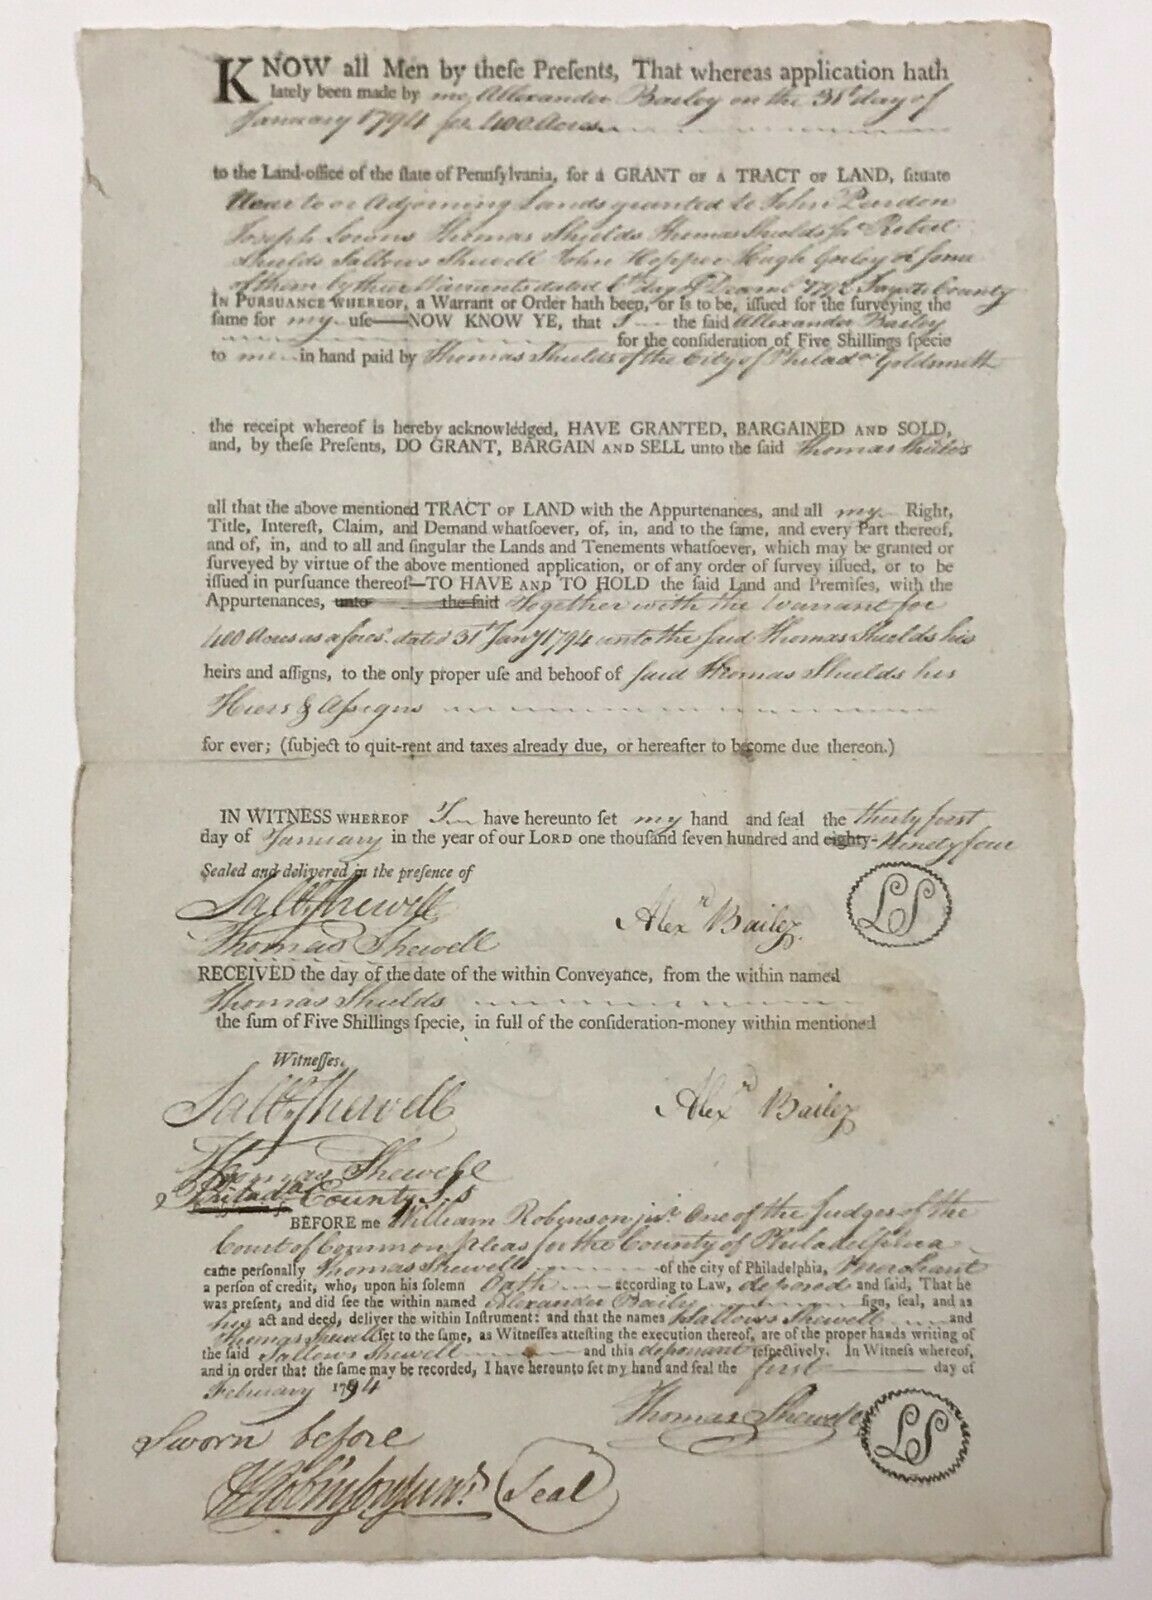 KNOW all Men by theſe Preſents, That whereas application hath
lately been made by me, Allexander Bailey on the 31st day of
January 1794 for 400 Acres
to the Land-office of the ſtate of Pennſylvania, for a GRANT OF A TRACT OF LAND, ſituate
Near to or Adjoining Lands granted to John Purdon
Joseph Lowns Thomas Shields Thomas Shields Jnr Robert
Shields Sallows Shewell John Hopper Hugh Gorley or some
of them by their Warrants dated day of Decemr 1792 Fayette County
IN PURSUANCE WHEREOF, a Warrant or Order hath been, or is to be, iſſued for the ſurveying the
ſame for my uſe—NOW KNOW YE, that I the ſaid Allexander Bailey
for the conſideration of Five Shillings ſpecie
to me in hand paid by Thomas Shields of the City of Philada Goldsmith
the receipt whereof is hereby acknowledged, HAVE GRANTED, BARGAINED AND SOLD,
and, by theſe Preſents, DO GRANT, BARGAIN AND SELL unto the ſaid Thomas Shields
all that the above mentioned TRACT OF LAND with the Appurtenances, and all my Right,
Title, Intereſt, Claim, and Demand whatſoever, of, in, and to the ſame, and every Part thereof,
and of, in, and to all and ſingular the Lands and Tenements whatſoever, which may be granted or
ſurveyed by virtue of the above mentioned application, or of any order of ſurvey iſſued, or to be
iſſued in purſuance thereof—TO HAVE AND TO HOLD the ſaid Land and Premiſes, with the
Appurtenances, unto the ſaid Together with the Warrant for
400 Acres as afores.d dated 31st Jany 1794 unto the said Thomas Shields his
heirs and aſſigns, to the only proper uſe and behoof of said Thomas Shields his
Hiers & Aſsigns
for ever; (ſubject to quit-rent and taxes already due, or hereafter to become due thereon.)
IN WITNESS WHEREOF I have hereunto ſet my hand and ſeal the thirty first
day of January in the year of our LORD one thouſand ſeven hundred and eighty- Ninety four
Sealed and delivered in the preſence of
Sallw. Shewell
Thomas Shewell
Alexr Bailey
LS
RECEIVED the day of the date of the within Conveyance, from the within named
Thomas Shields
the ſum of Five Shillings ſpecie, in full of the conſideration-money within mentioned
Witneſſes.
Sallw. Shewell
Alexr Bailey
Thomas Shewell
Philada County Ss
BEFORE me William Robinson junr One of the Judges of the
Court of Common pleas for the County of Philadelphia
came perſonally Thomas Shewell of the city of Philadelphia, Merchant
a perſon of credit, who, upon his ſolemn Oath according to Law, deposed and ſaid, That he
was preſent, and did ſee the within named Alexander Baily ſign, ſeal, and as
his act and deed, deliver the within Inſtrument: and that the names Sallows Shewell and
Thomas Shewell ſet to the ſame, as Witneſſes atteſting the execution thereof, are of the proper hands writing of
the ſaid Sallows Shewell and this deponant reſpectively. In Witneſs whereof,
and in order that the ſame may be recorded, I have hereunto ſet my hand and ſeal the first day of
February 1794
Thomas Shewell
LS
Sworn before
W Robinson junr
Seal